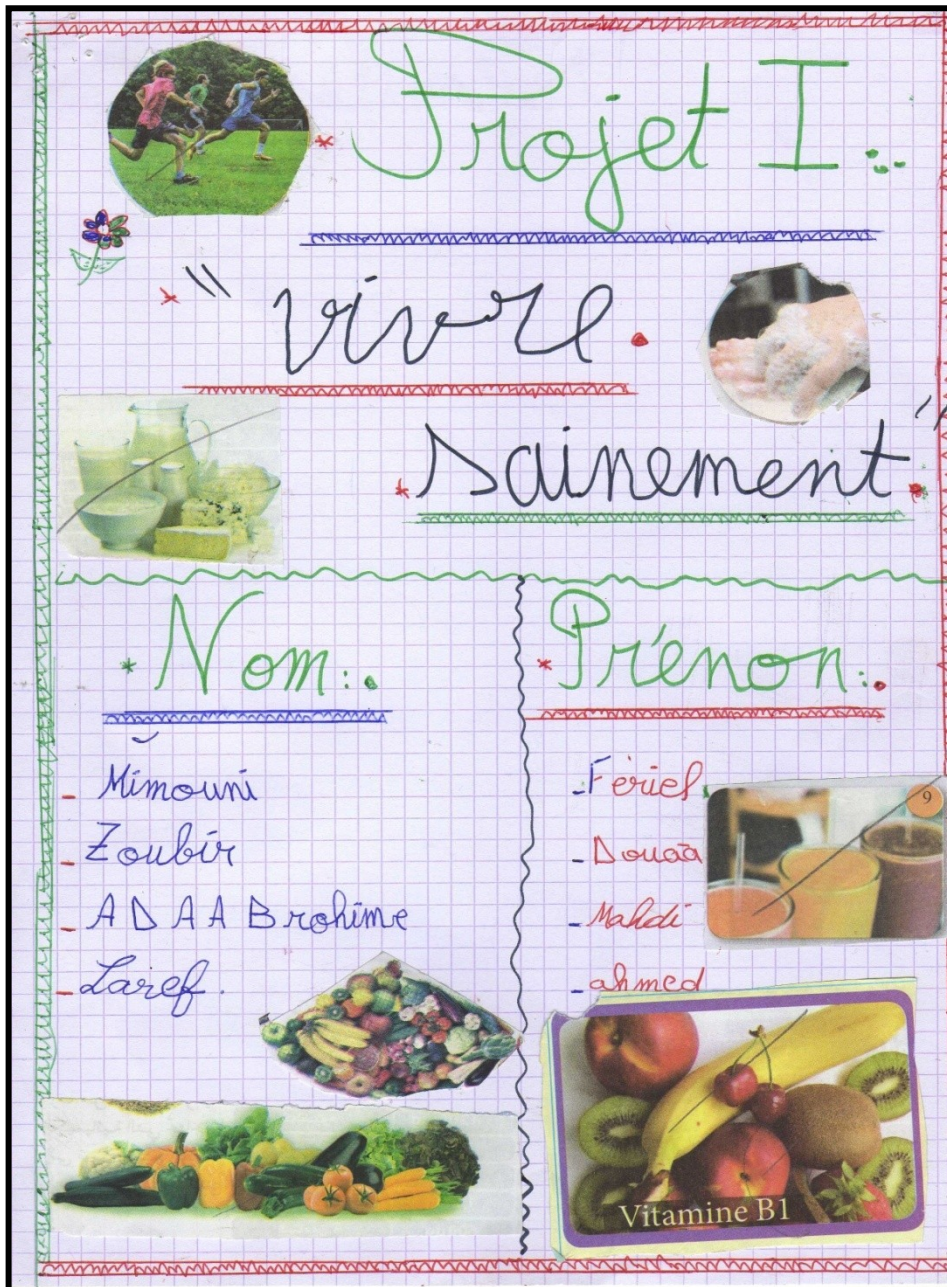 Projet I :
"vivre
sainement"
Nom :
Prénon :
- Mimouni
- Zoubir
- A D A A Brohime
- Laref.
- Fériel
- Douaa
- Mahdi
- ahmed
9
Vitamine B1